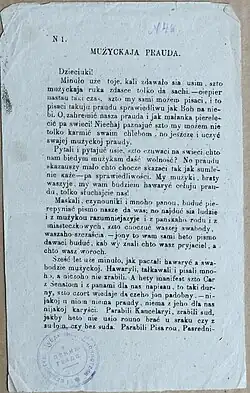 N 1.
MUZYCKAJA PRAUDA.
Dzieciuki!
Minuło uże toje, kali zdawało sia usim, szto
mużyckaja ruka zdasce tolko da sachi,—ciepier
nastau taki czas, szto my sami możem pisaci, i to
pisaci takuju praudu sprawiedliwu jak Boh na nie-
bi. O, zahremić nasza prauda i jak małanka pierele-
cić pa świeci! Niechaj paznajuć szto my możem nie
tolko karmić swaim chlebom, no jeszcze i uczyć
swajej mużyckoj praudy.
Pytali i pytajuć usie, szto czuwaci na świeci chto
nam biednym mużykam daść wolność? No praudu
skazauszy mało chto chocze skazaci tak jak sumle-
nie każe—pa sprawiedliwości. My mużyki, braty
waszyje, my wam budziem hawaryć celuju prau-
du, tolko słuchajcie nas!
Maskali, czynouniki i mnoho panou, buduć pie-
repyniać pismo nasze da was; no najduć sia ludzie
i z mużykou razumniejszyje i z panskaho rodu i z
miasteczkowych, szto choczuć waszej swabody,
waszaho szczaścia — jony to wam sami heto pismo
dawaci buduć, kab wy znali chto wasz pryjaciel, a
chto wasz woroch.
Sześć let uże minuło, jak paczali hawaryć a swa-
bodzie mużyckoj. Hawaryli, tałkawali i pisali mno-
ho, a niczoho nie zrabili. A hety manifest szto Car
z Senatom i z panami dla nas napisau, to taki dur-
ny, szto czort wiedaje da czeho jon padobny,—ni-
jakoj u niom niema praudy, niema z jeho dla nas
nijakoj karyści. Parabili Kancelaryi, zrabili sud,
jakby heto nie usio rouno brać u sraku czy z
sudom, czy bez suda. Parabili Pisarou, Pasredni-